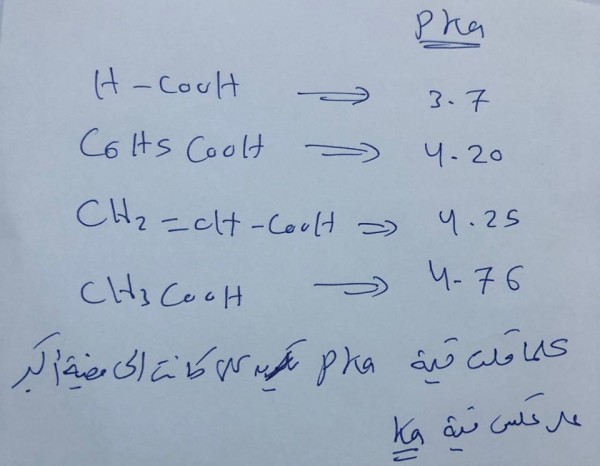 PKa
H-COOH ⇒ 3.7
C6H5COOH ⇒ 4.20
CH2=CH-COOH ⇒ 4.25
CH3COOH ⇒ 4-76
كلما قلت قيمة PKa كانت الحمضية أكبر
على عكس قيمة Ka